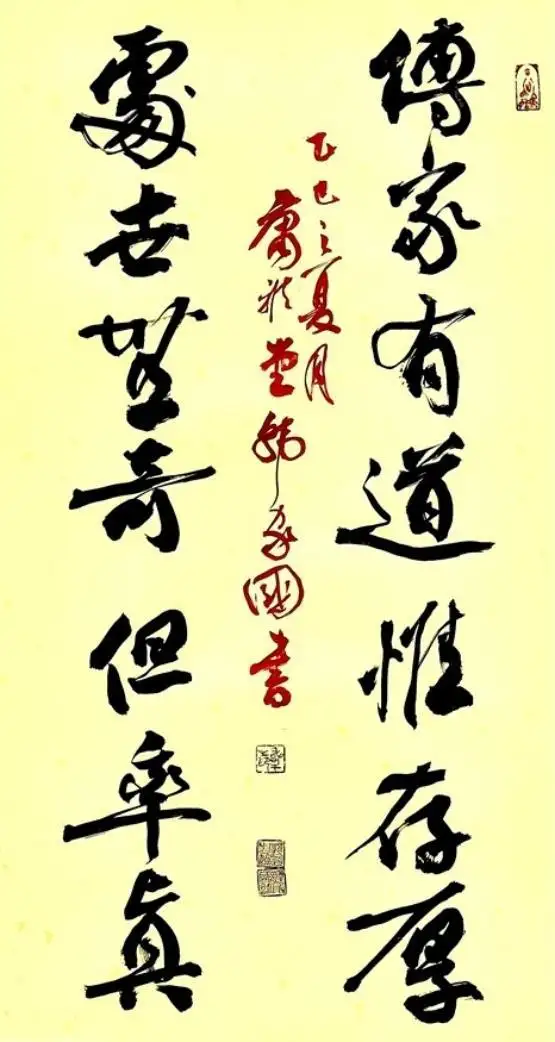 傳家有道惟存厚
處世無奇但率真
乙巳之夏月
國書